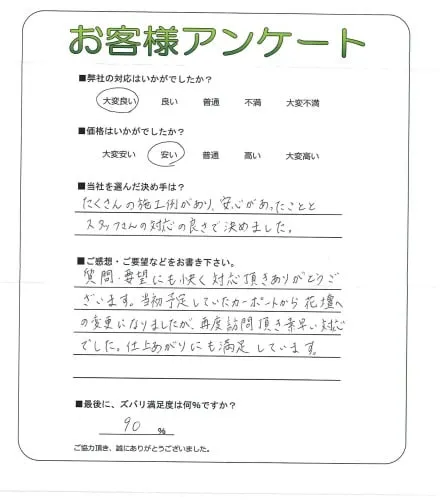 お客様アンケート
■弊社の対応はいかがでしたか？
大変良い 良い 普通 不満 大変不満
■価格はいかがでしたか？
大変安い 安い 普通 高い 大変高い
■当社を選んだ決め手は？
たくさんの施工例があり、安心があったことと
スタッフさんの対応の良さで決めました。
■ご感想・ご要望などをお書き下さい。
質問・要望にも快く対応頂きありがとうご
ざいます。当初予定していたカーポートから花壇へ
の変更になりましたが、再度訪問頂き素早い対応
でした。仕上あがりにも満足しています。
■最後に、ズバリ満足度は何%ですか？
90 %
ご協力頂き、誠にありがとうございました。